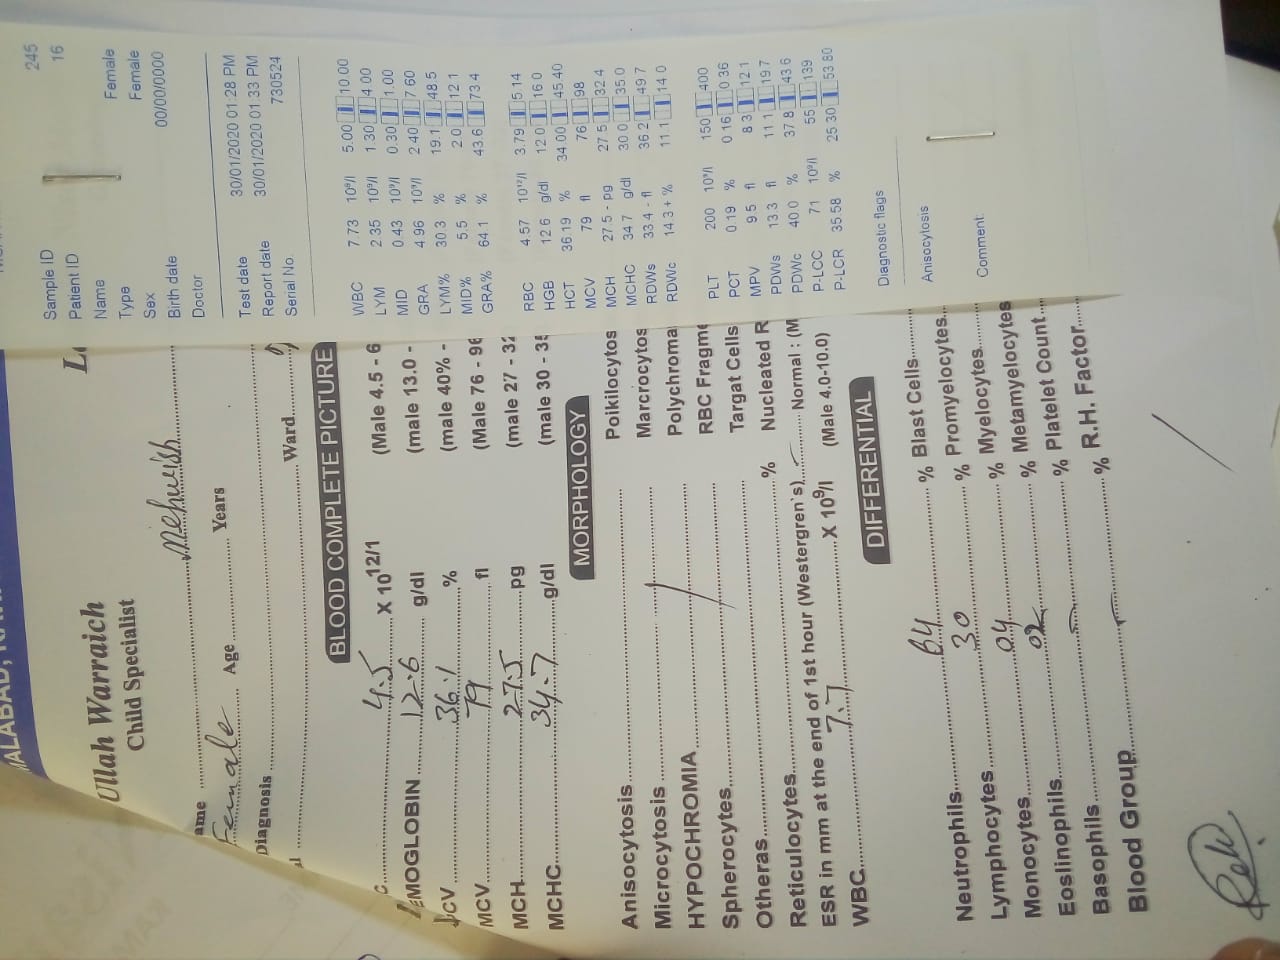 MALABAD,
Ullah Warraich
Child Specialist
ame Mehwish
Female Age Years
Diagnosis
Ward
BLOOD COMPLETE PICTURE
C. 4.5 X 10 12/1 (Male 4.5 - 6
HEMOGLOBIN 12.6 g/dl (male 13.0 -
PCV 36.1 % (male 40% -
MCV 79 fl (Male 76 - 96
MCH 27.5 pg (male 27 - 32
MCHC 34.7 g/dl (male 30 - 35
MORPHOLOGY
Anisocytosis Poikilocytos
Microcytosis Marcrocytos
HYPOCHROMIA Polychroma
Spherocytes RBC Fragme
Otheras Targat Cells
Reticulocytes % Nucleated R
ESR in mm at the end of 1st hour (Westergren`s) Normal : (M
WBC 7.7 X 10 9/l (Male 4.0-10.0)
DIFFERENTIAL
Neutrophils 64 % Blast Cells
Lymphocytes 30 % Promyelocytes
Monocytes 04 % Myelocytes
Eoslinophils 02 % Metamyelocytes
Basophils % Platelet Count
Blood Group % R.H. Factor
Sample ID 245
Patient ID 16
Name
Type Female
Sex Female
Birth date 00/00/0000
Doctor
Test date 30/01/2020 01:28 PM
Report date 30/01/2020 01:33 PM
Serial No. 730524
WBC 7.73 10⁹/l 5.00 10.00
LYM 2.35 10⁹/l 1.30 4.00
MID 0.43 10⁹/l 0.30 1.00
GRA 4.96 10⁹/l 2.40 7.60
LYM% 30.3 % 19.1 48.5
MID% 5.5 % 2.0 12.1
GRA% 64.1 % 43.6 73.4
RBC 4.57 10¹²/l 3.79 5.14
HGB 12.6 g/dl 12.0 16.0
HCT 36.19 % 34.00 45.40
MCV 79 fl 76 98
MCH 27.5 - pg 27.5 32.4
MCHC 34.7 g/dl 30.0 35.0
RDWs 33.4 - fl 36.2 49.7
RDWc 14.3 + % 11.1 14.0
PLT 200 10⁹/l 150 400
PCT 0.19 % 0.16 0.36
MPV 9.5 fl 8.3 12.1
PDWs 13.3 fl 11.1 19.7
PDWc 40.0 % 37.8 43.6
P-LCC 71 10⁹/l 55 139
P-LCR 35.58 % 25.30 53.80
Diagnostic flags
Anisocytosis
Comment: